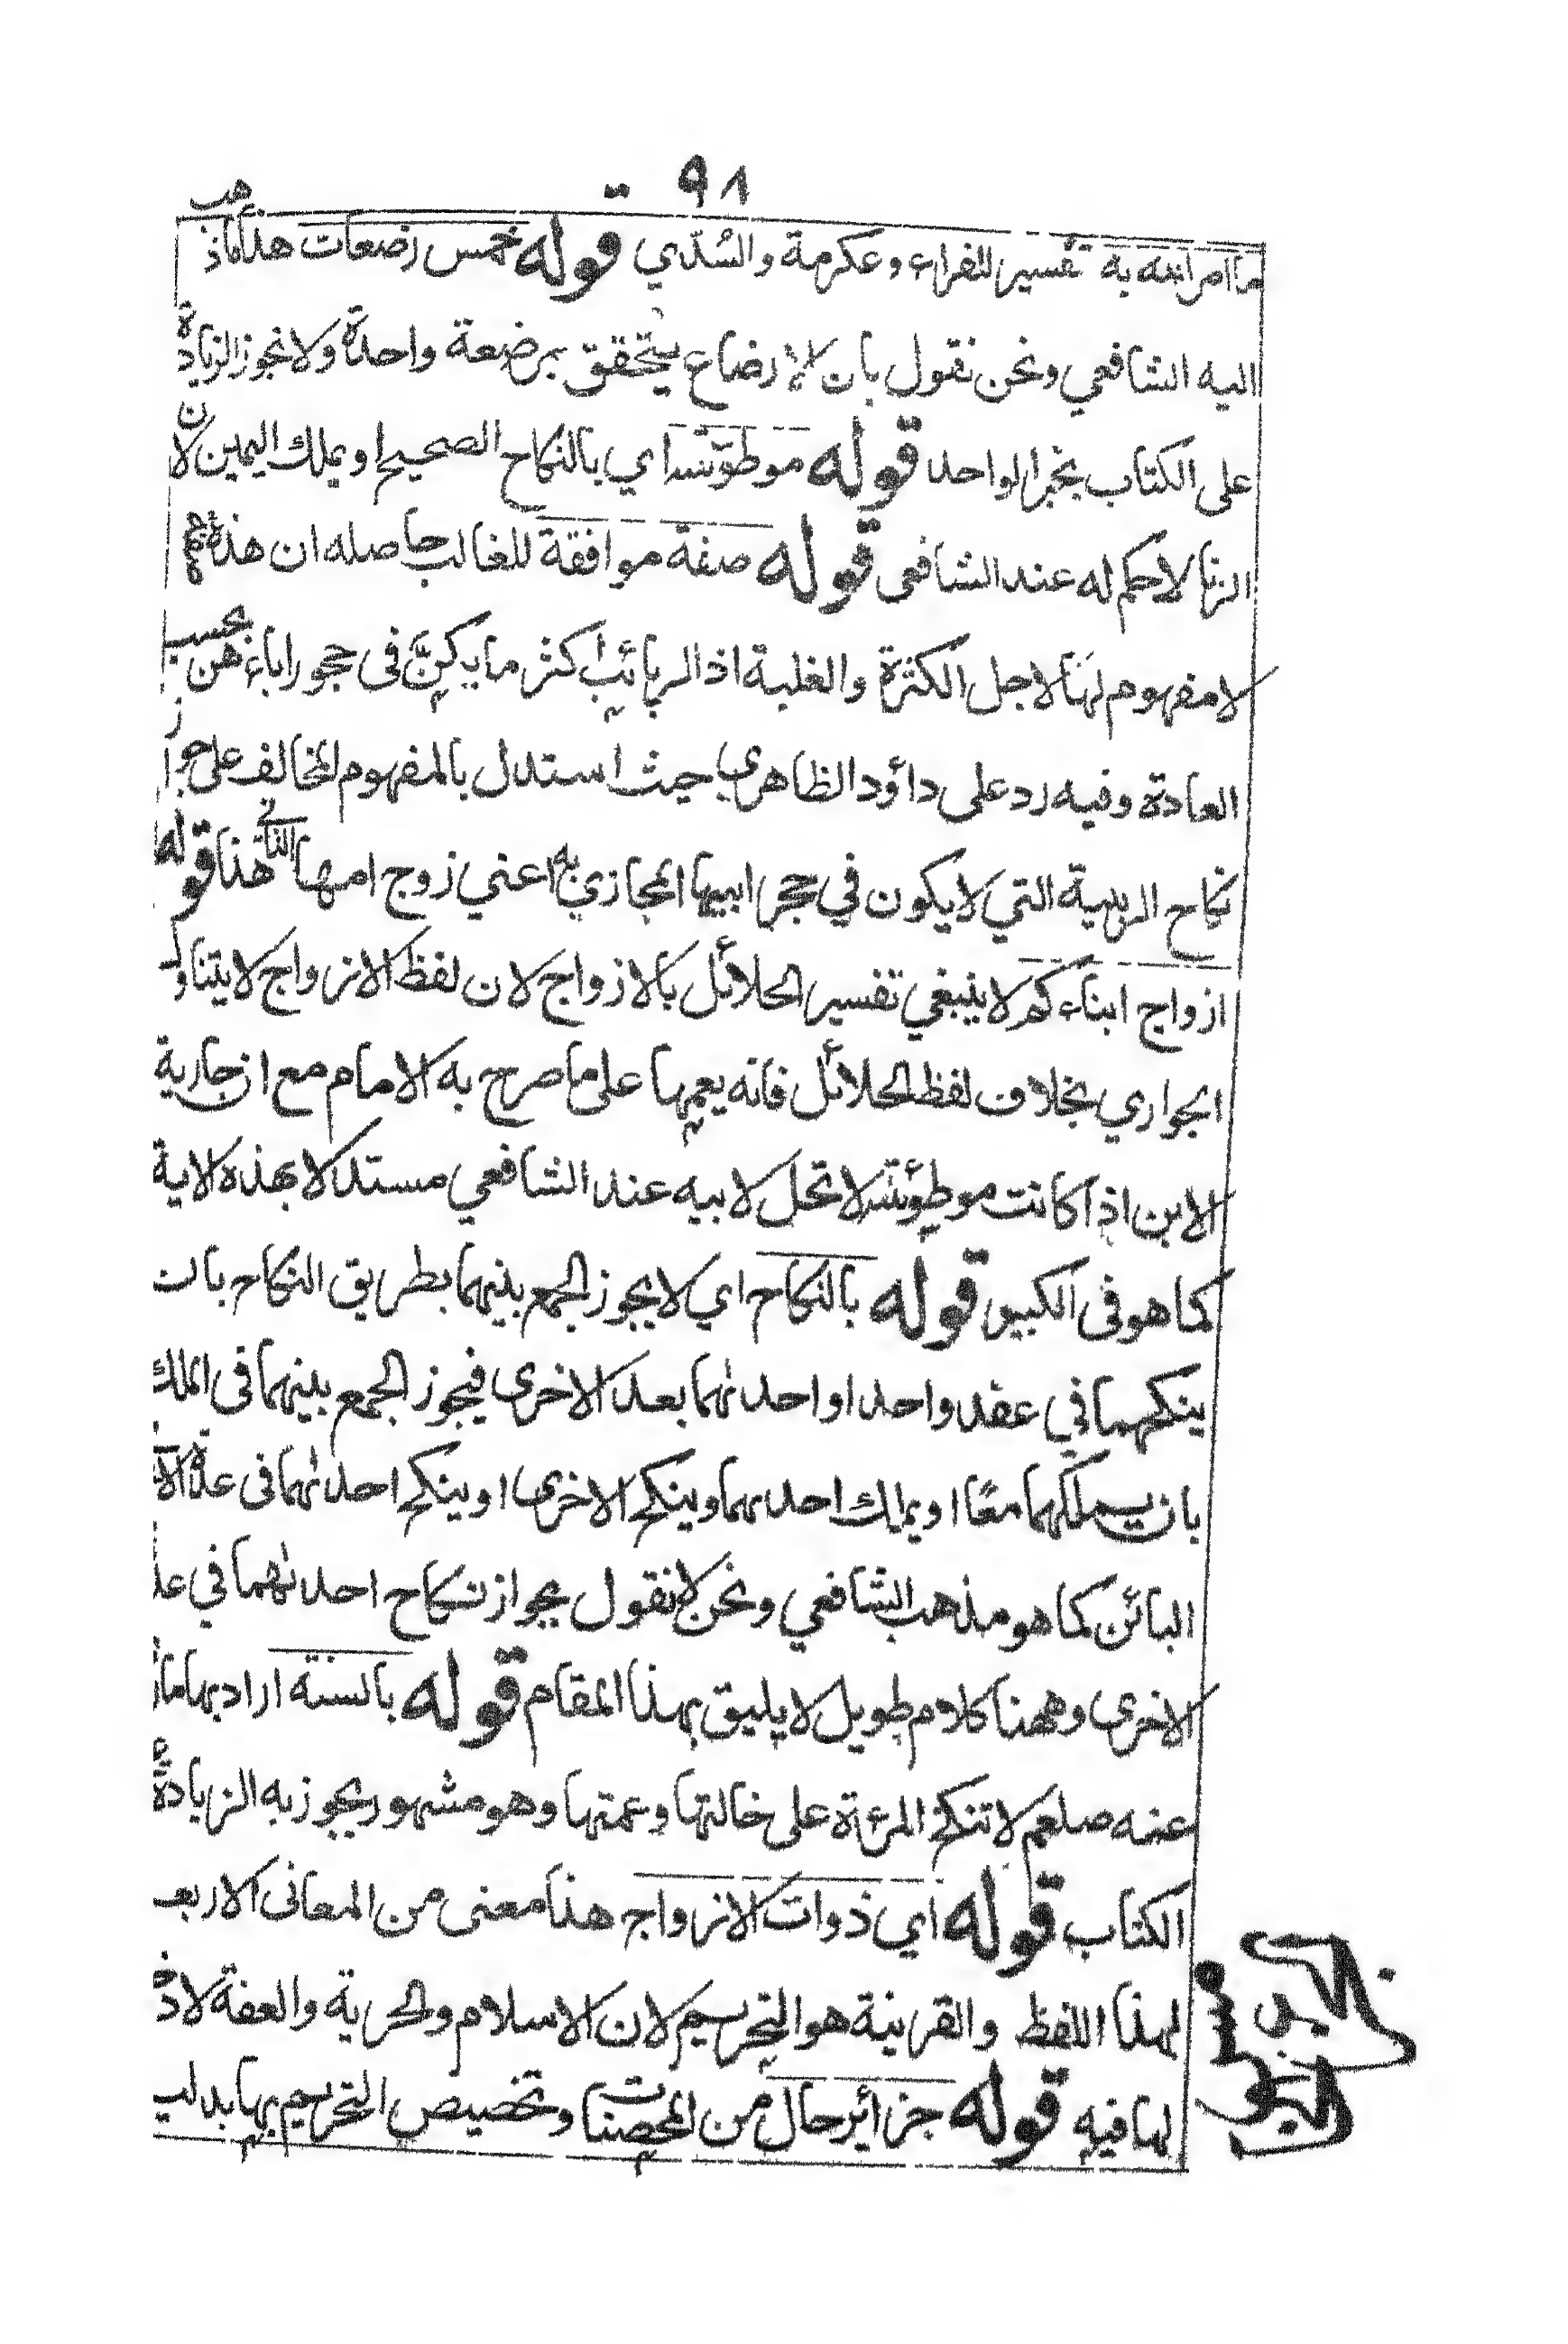 ٩٨
ما امر الله به تفسير للفراء وعكرمة والسُدّي قوله خمس رضعات هذا ماذهب
اليه الشافعي ونحن نقول بان الارضاع يتحقق برضعة واحدة ولا نجوز الزيادة
على الكتاب بخبر الواحد قوله موطوئته اي بالنكاح الصحيح او بملك اليمين لان
الزنا لا حكم له عند الشافعى قوله صفة موافقة للغالب حاصله ان هذه
لا مفهوم لها لاجل الكثرة والغلبة اذ الربائب اكثر ما يكنّ فى حجور اباءهن بحسب
العادة وفيه رد على داؤد الظاهري حيث استدل بالمفهوم المخالف على جواز
نكاح الربيبة التي لا يكون في حجر ابيها المجازي اعني زوج امها هذا قوله
ازواج ابناءكم لا ينبغي تفسير الحلائل بالازواج لان لفظ الازواج لا يتناول
الجواري بخلاف لفظ الحلائل فانه يعمها على ما صرح به الامام مع ان جارية
الابن اذا كانت موطوئته لا تحل لابيه عند الشافعي مستدلا بهذه الاية
كما هو فى الكبير قوله بالنكاح اي لا يجوز الجمع بينهما بطريق النكاح بان
ينكحهما في عقد واحد او احدٰىهما بعد الاخرى فيجوز الجمع بينهما فى الملك
بان يملكهما معًا او يملك احدىهما وينكح الاخرى او ينكح احدٰىهما فى عدة
البائن كما هو مذهب الشافعي ونحن لا نقول بجواز نكاح احدٰىهما في
الاخرى وههنا كلام طويل لا يليق بهذا المقام قوله بالسنة اراد بها
عنه صلعم لا تنكح المرءة على خالتها وعمتها وهو مشهور يجوز به الزيادة
الكتاب قوله اي ذوات الازواج هذا معنى من المعانى الاربعـ
لهذا اللفظ والقرينة هو التحريم لان الاسلام والحرية والعفة لا
لها فيه قوله جرائر حال من المحصنات وتخصيص التحريم بها